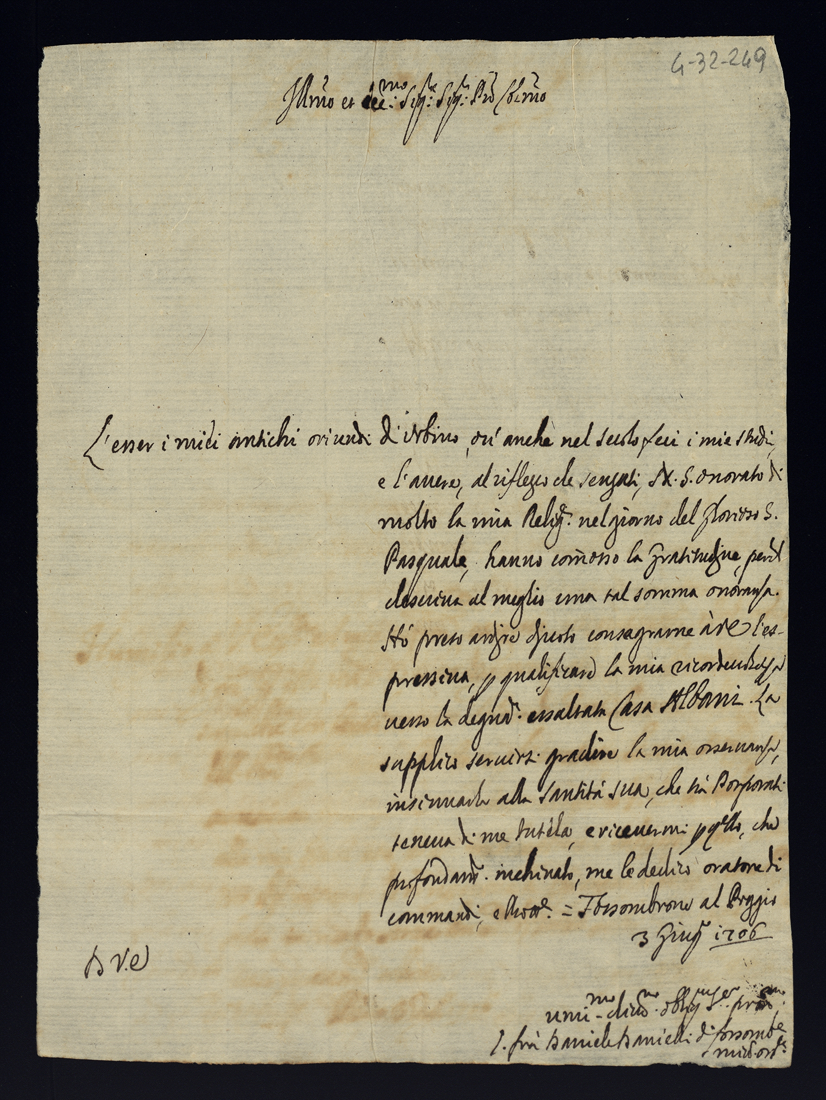 4-32-249
Illmo et Ecc:mo Sigr: Sigr: Pron Colmo
L'esser i miei antichi oriundi d'Urbino, ou' anche nel secolo feci i miei studi,
e l'auere, al riflesso de sensati, N. S. onorato di
molto la mia Relig: nel giorno del glorioso S.
Pasquale, hanno comosso la gratitudine,
descriua al meglio una tal somma onoranza.
Hó preso ardire questo consagrarne à V E l'es-
pressiua, p qualificare la mia ricordeuolezza
uerso la degna essaltata Casa Albani. La
supplico seruirsi gradire la mia osseruanza,
insinuarla alla Santità sua, che trà Porporati
teneua di me tutela, e riceuermi p qllo, che
profondam: inchinato, me le dedico oratore di
commandi, e = Fossombrone al Poggio
3 Giug 1706
D V.E
umi:mo diuo:mo obblig:mo Ser
f. frà Daniele Danielli di fossombe
min: oss: